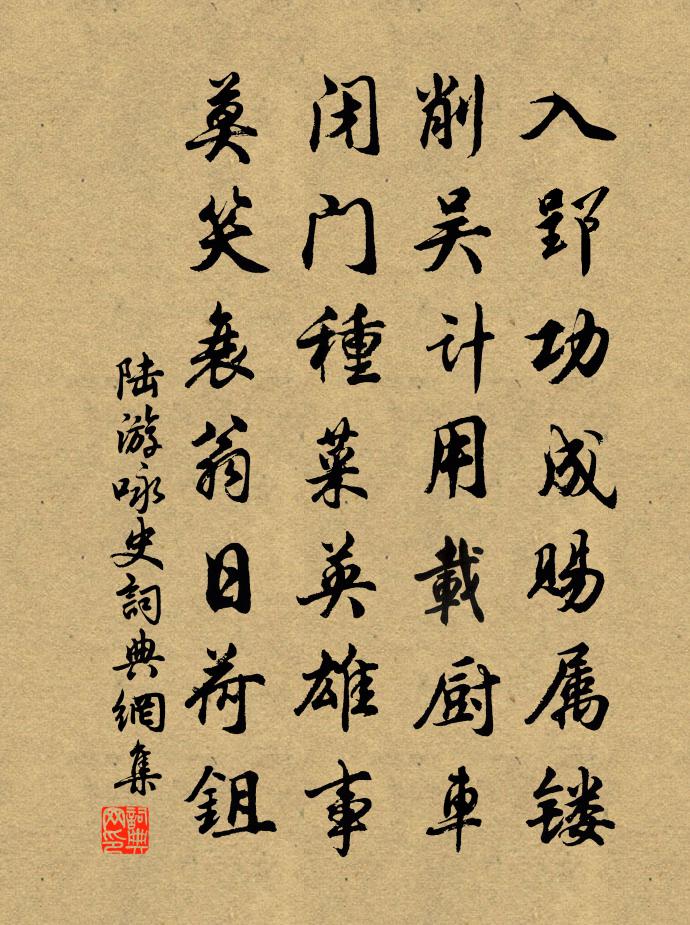 入郢功成赐属镂
削吴计用載厨車
闭门種菜英雄事
莫笑衰翁日荷鉏
陆游咏史詞典網集
詞典网印